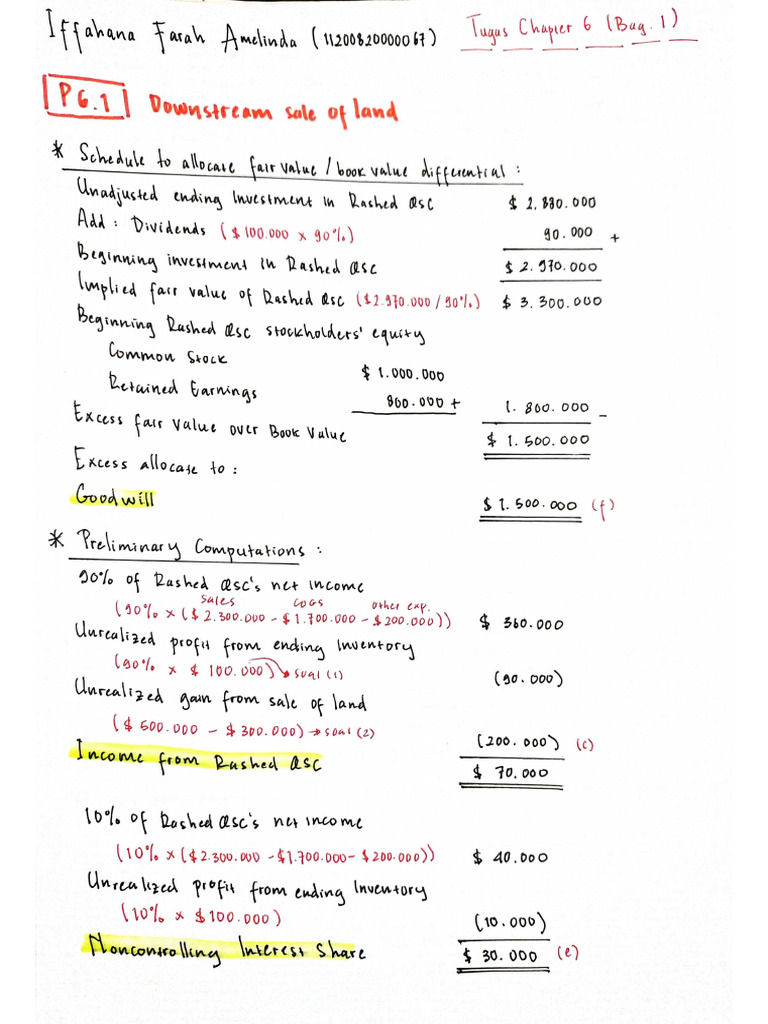 Iffahana Farah Amelinda (11200820000067) Tugas Chapter 6 (Bag. 1)
P6.1 Downstream sale of land
* Schedule to allocate fair value / book value differential :
Unadjusted ending Investment in Rashed QSC $ 2.880.000
Add : Dividends ($100.000 x 90%) 90.000 +
Beginning investment in Rashed QSC $ 2.970.000
Implied fair value of Rashed QSC ($2.970.000/90%) $ 3.300.000
Beginning Rashed QSC stockholders' equity
Common Stock $ 1.000.000
Retained Earnings 800.000 + 1.800.000 -
Excess fair value over Book Value $ 1.500.000
Excess allocate to :
Goodwill $ 1.500.000 (f)
* Preliminary Computations :
90% of Rashed QSC's net income
sales COGS other exp.
(90% x ($ 2.300.000 - $ 1.700.000 - $ 200.000)) $ 360.000
Unrealized profit from ending Inventory
(90% x $ 100.000) → soal (1) (90.000)
Unrealized gain from sale of land
($ 500.000 - $ 300.000) → soal (2) (200.000) (c)
Income from Rashed QSC $ 70.000
10% of Rashed QSC's net income
(10% x ($2.300.000 - $1.700.000 - $200.000)) $ 40.000
Unrealized profit from ending Inventory
(10% x $100.000) (10.000)
Noncontrolling Interest Share $ 30.000 (e)